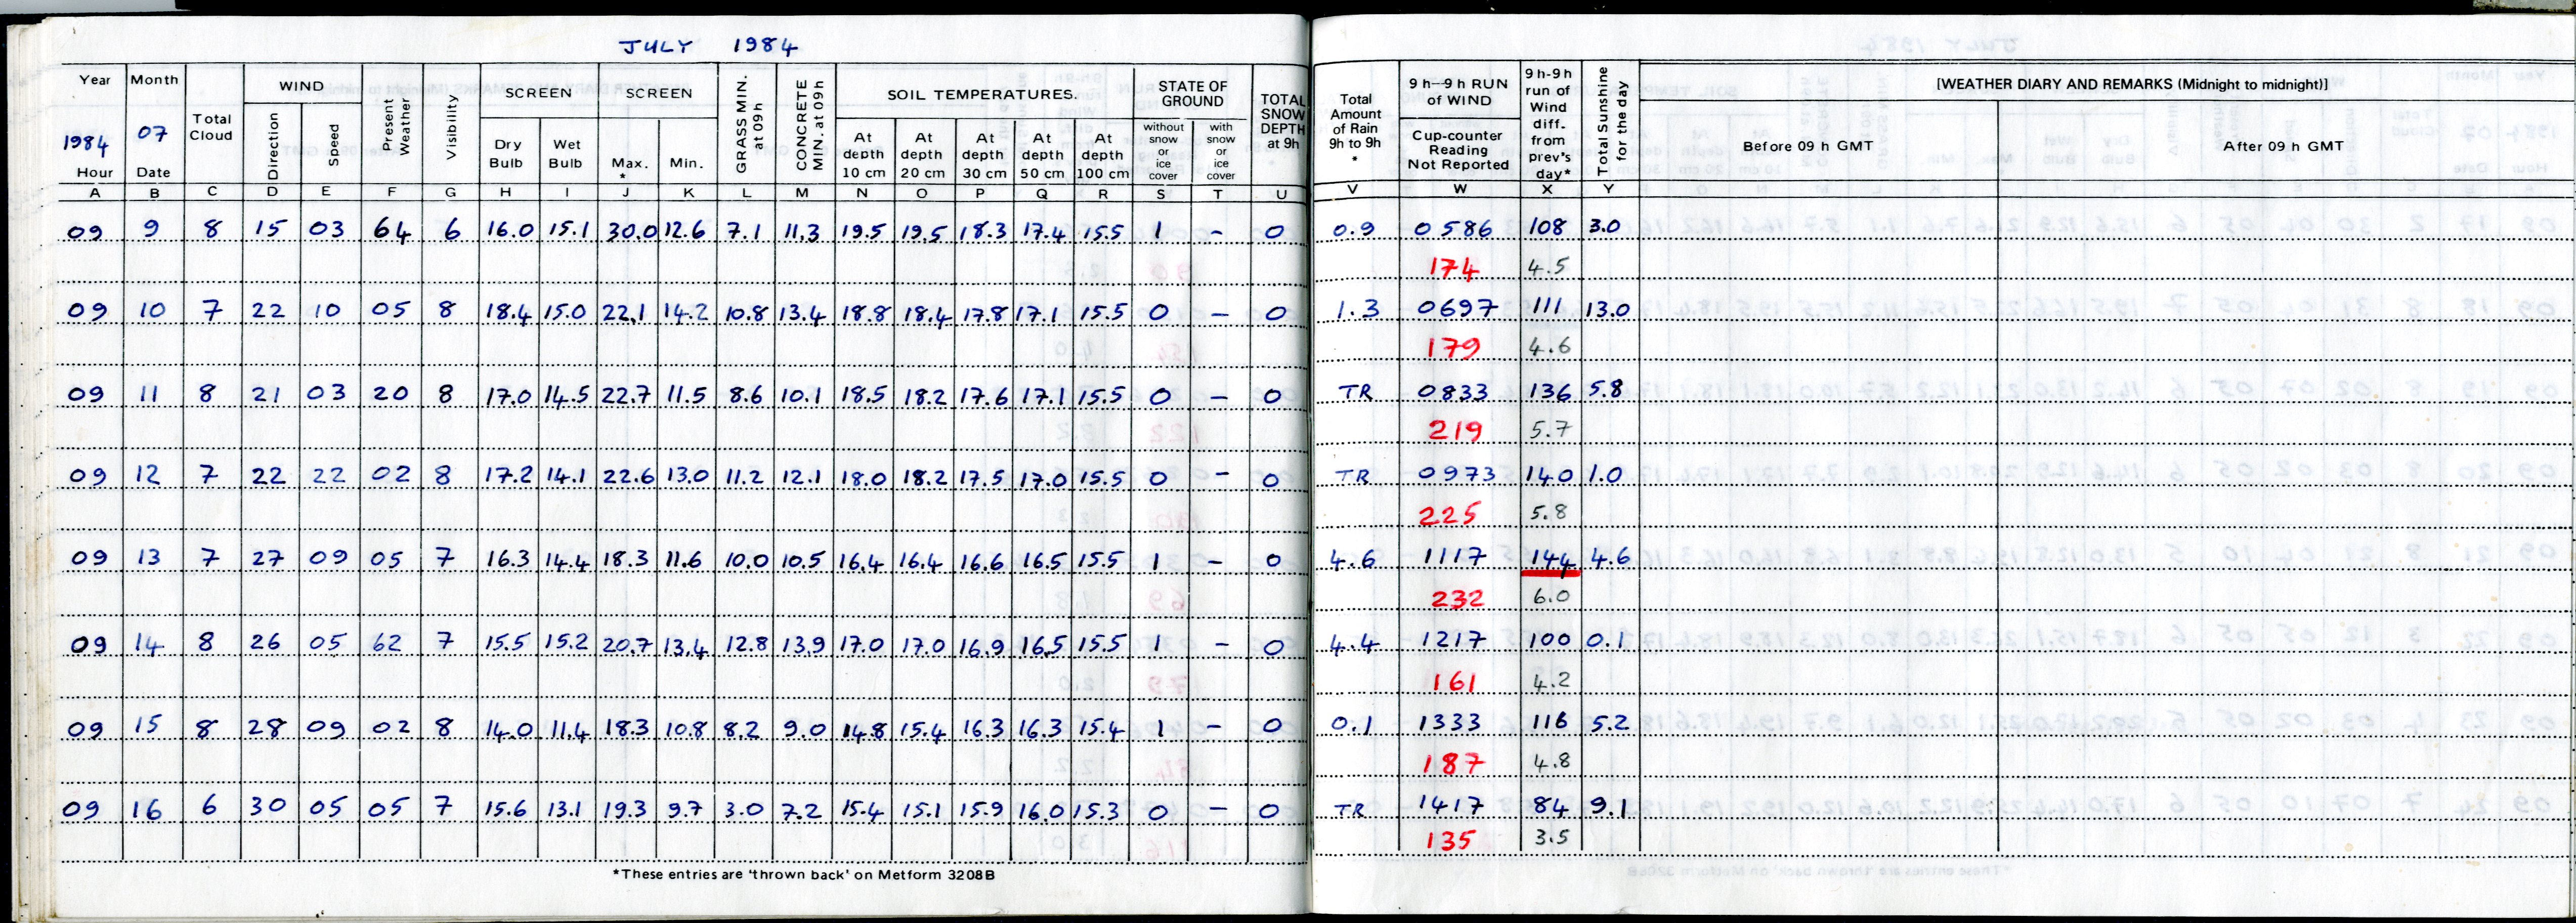 JULY 1984
Year Month Total Cloud WIND Present Weather Visibility SCREEN SCREEN GRASS MIN. at 09h CONCRETE MIN. at 09h SOIL TEMPERATURES. STATE OF GROUND TOTAL SNOW DEPTH at 9h Total Amount of Rain 9h to 9h * 9 h—9 h RUN of WIND 9 h-9 h run of Wind diff. from prev's day* Total Sunshine for the day [WEATHER DIARY AND REMARKS (Midnight to midnight)]
1984 07 Direction Speed Dry Bulb Wet Bulb Max. * Min. At depth 10 cm At depth 20 cm At depth 30 cm At depth 50 cm At depth 100 cm without snow or ice cover with snow or ice cover Cup-counter Reading Not Reported Before 09 h GMT After 09 h GMT
Hour Date
A B C D E F G H I J K L M N O P Q R S T U V W X Y
09 9 8 15 03 64 6 16.0 15.1 30.0 12.6 7.1 11.3 19.5 19.5 18.3 17.4 15.5 1 - 0 0.9 0586 108 3.0
174 4.5
09 10 7 22 10 05 8 18.4 15.0 22.1 14.2 10.8 13.4 18.8 18.4 17.8 17.1 15.5 0 - 0 1.3 0697 111 13.0
179 4.6
09 11 8 21 03 20 8 17.0 14.5 22.7 11.5 8.6 10.1 18.5 18.2 17.6 17.1 15.5 0 - 0 TR 0833 136 5.8
219 5.7
09 12 7 22 22 02 8 17.2 14.1 22.6 13.0 11.2 12.1 18.0 18.2 17.5 17.0 15.5 0 - 0 TR 0973 140 1.0
225 5.8
09 13 7 27 09 05 7 16.3 14.4 18.3 11.6 10.0 10.5 16.4 16.4 16.6 16.5 15.5 1 - 0 4.6 1117 144 4.6
232 6.0
09 14 8 26 05 62 7 15.5 15.2 20.7 13.4 12.8 13.9 17.0 17.0 16.9 16.5 15.5 1 - 0 4.4 1217 100 0.1
161 4.2
09 15 8 28 09 02 8 14.0 11.4 18.3 10.8 8.2 9.0 14.8 15.4 16.3 16.3 15.4 1 - 0 0.1 1333 116 5.2
187 4.8
09 16 6 30 05 05 7 15.6 13.1 19.3 9.7 3.0 7.2 15.4 15.1 15.9 16.0 15.3 0 - 0 TR 1417 84 9.1
135 3.5
*These entries are 'thrown back' on Metform 3208B